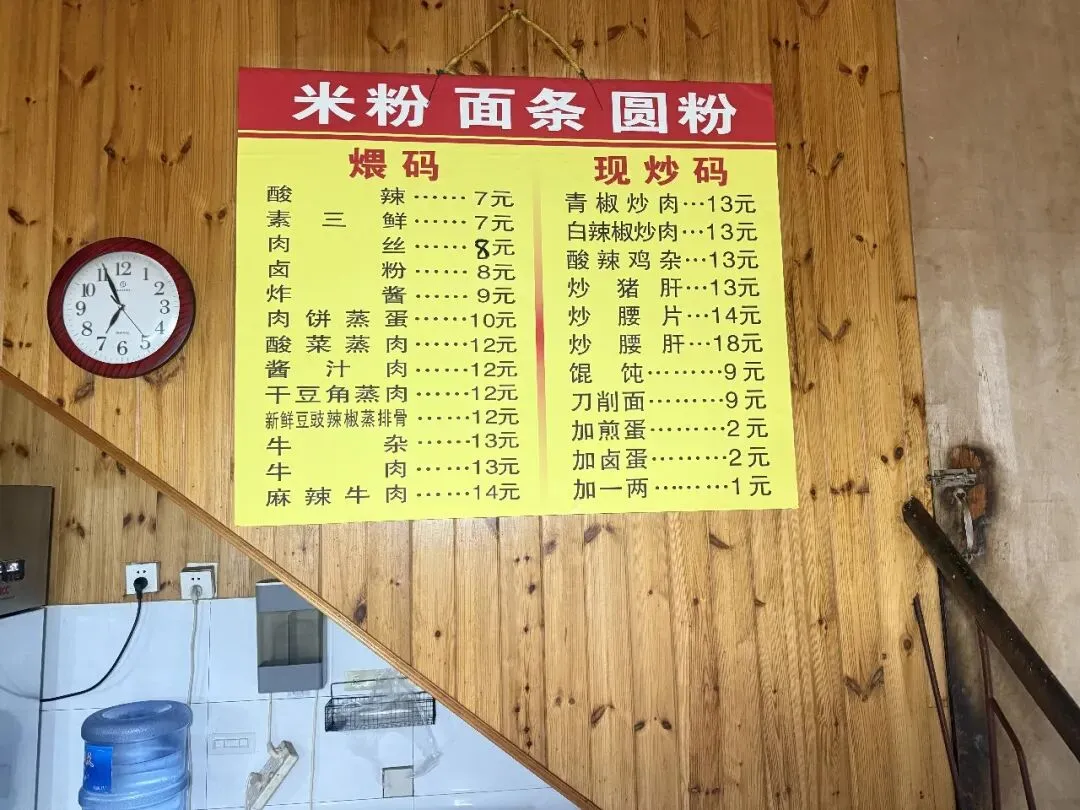 米粉 面条 圆粉
煨码
酸辣……7元
素三鲜……7元
肉丝……8元
卤粉……8元
炸酱……9元
肉饼蒸蛋……10元
酸菜蒸肉……12元
酱汁肉……12元
干豆角蒸肉……12元
新鲜豆豉辣椒蒸排骨……12元
牛杂……13元
牛肉……13元
麻辣牛肉……14元
现炒码
青椒炒肉…13元
白辣椒炒肉…13元
酸辣鸡杂…13元
炒猪肝…13元
炒腰片…14元
炒腰肝…18元
馄饨………9元
刀削面………9元
加煎蛋………2元
加卤蛋………2元
加一两………1元
12
1
2
3
4
5
6
7
8
9
10
11